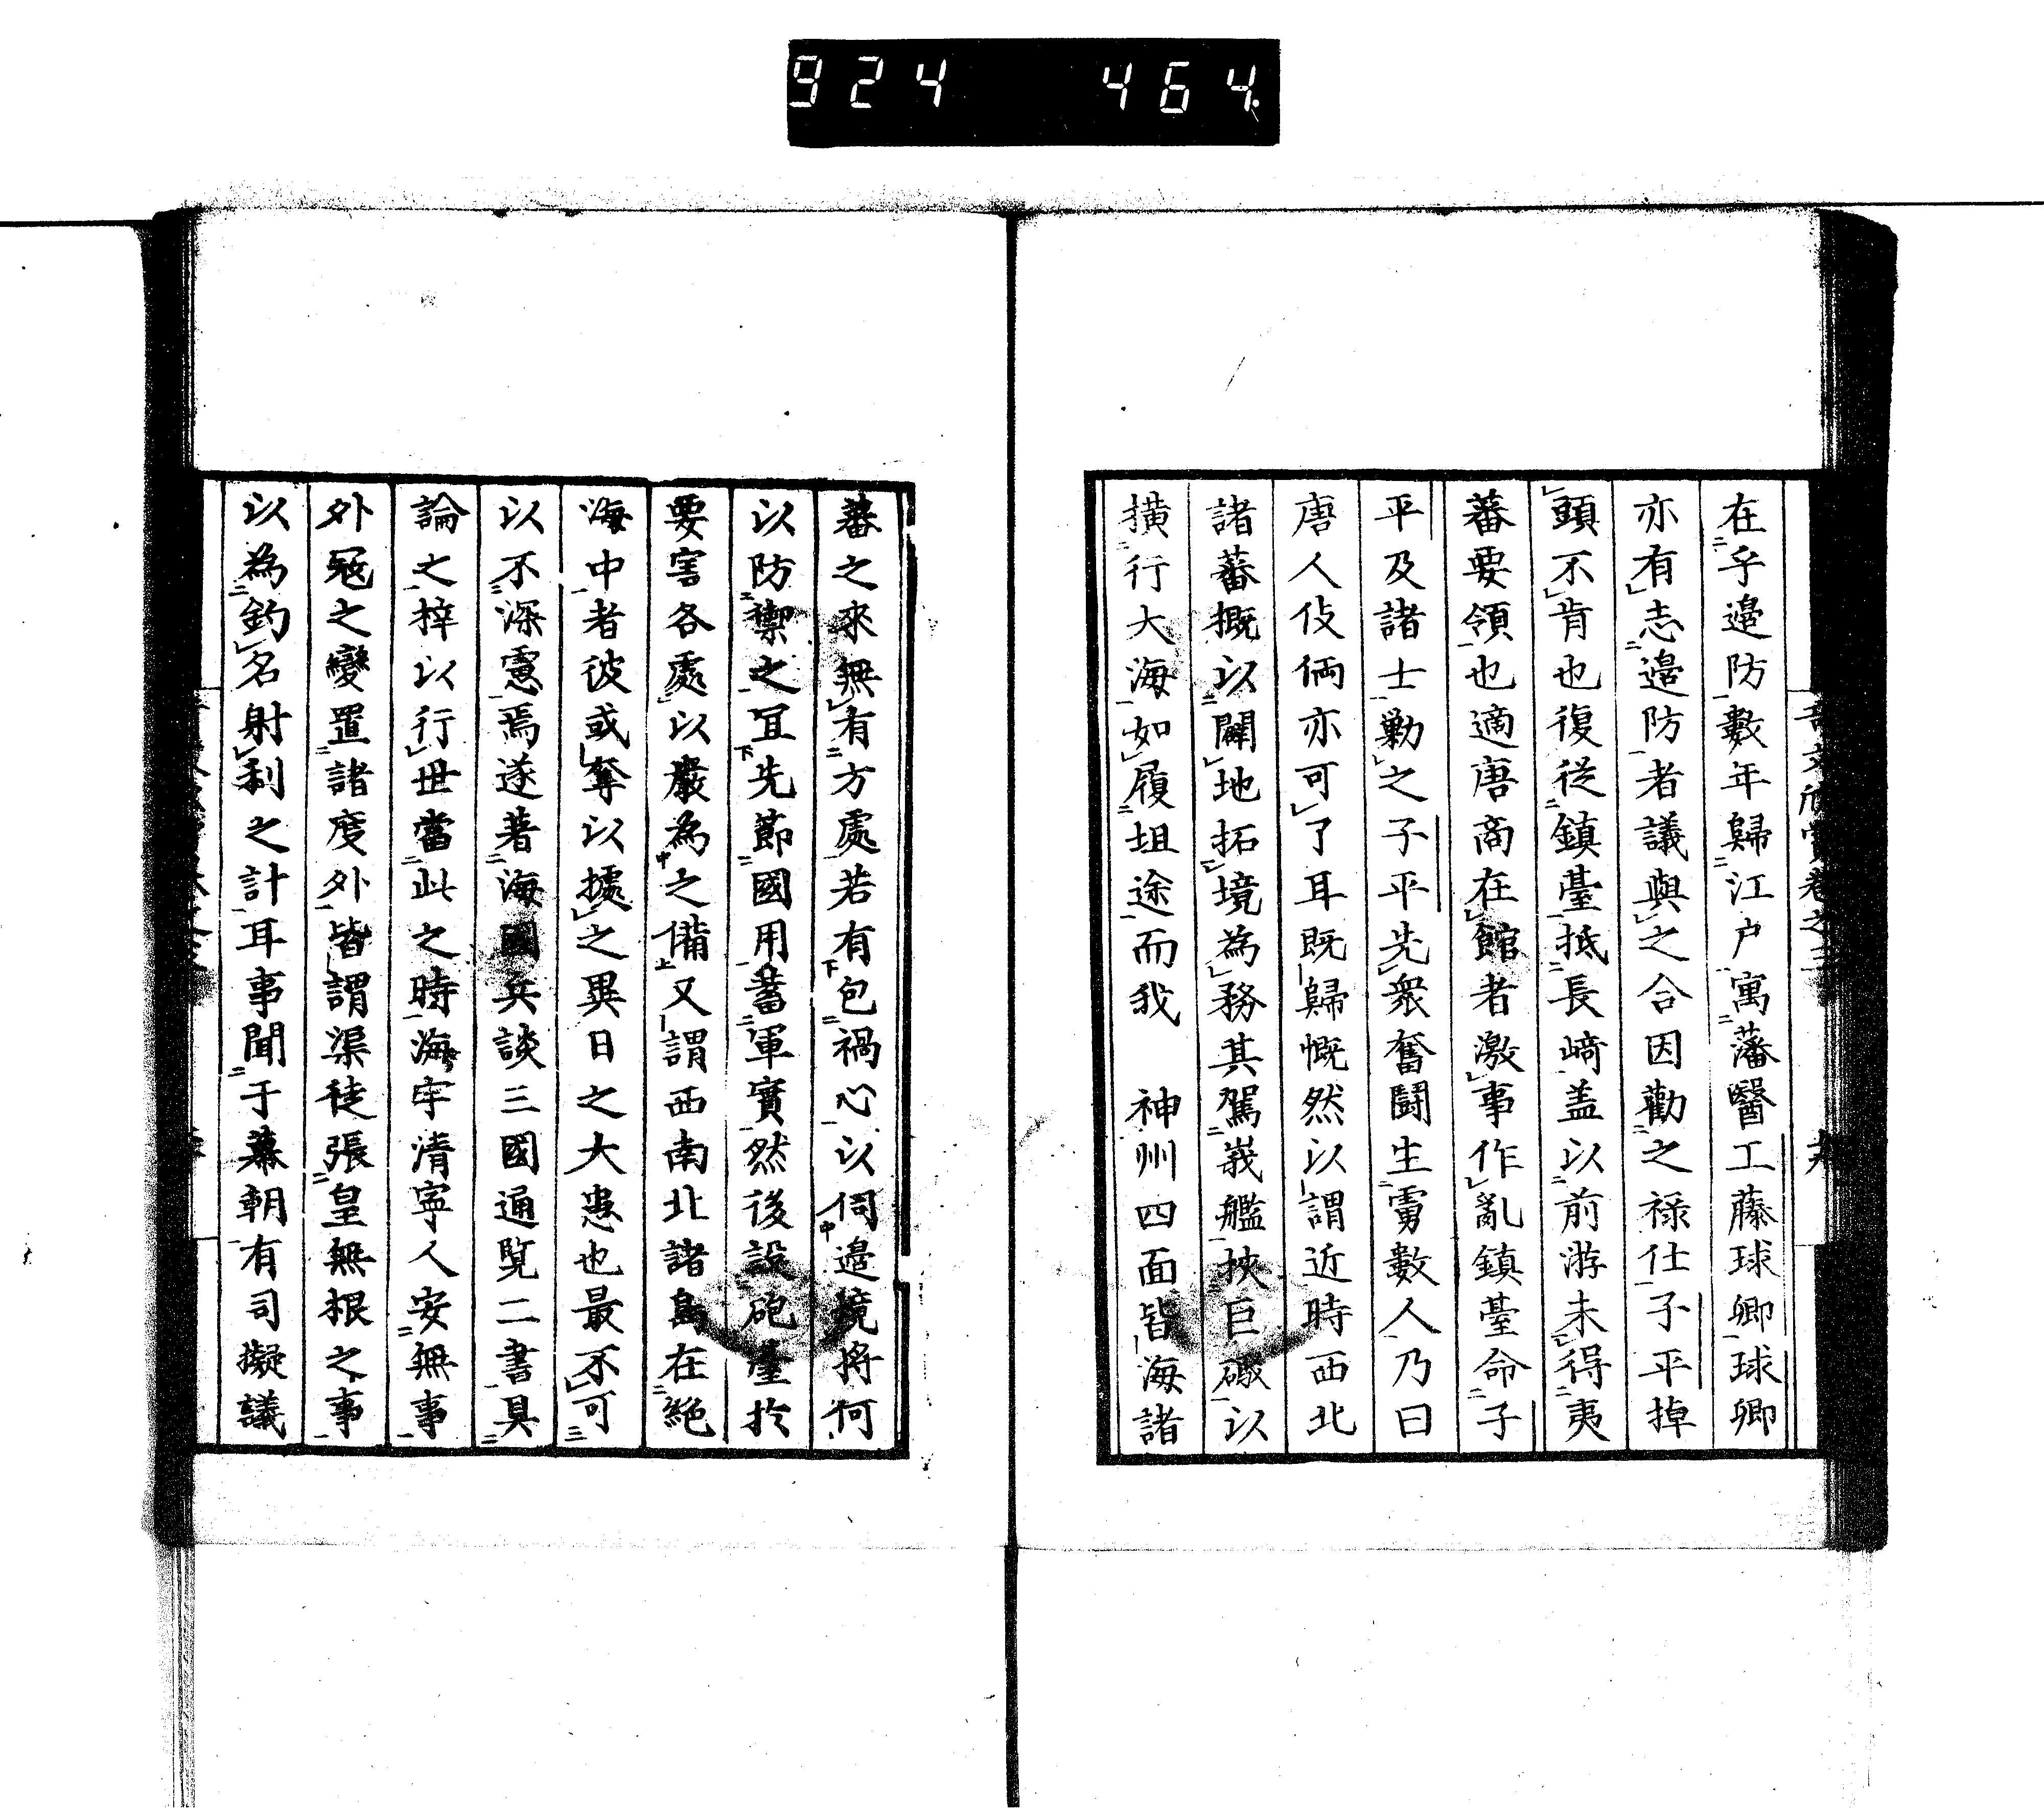 924 464
在乎邉防數年歸江戸寓藩醫工藤球卿球卿
亦有志邉防者議與之合因勸之祿仕子平掉
頭不肯也復從鎮臺抵長﨑盖以前游未得夷
蕃要領也適唐商在館者激事作亂鎮臺命子
平及諸士勦之子平先衆奮鬪生虜數人乃曰
唐人伎倆亦可了耳既歸慨然以謂近時西北
諸蕃概以闢地拓境為務其駕峩艦挾巨礮以
橫行大海如履坦途而我　神州四面皆海諸
蕃之來無有方處若有包禍心以伺邉境將何
以防禦之宜先節國用蓄軍實然後設砲臺於
要害各處以嚴為之備又謂西南北諸島在絶
海中者彼或奪以據之異日之大患也最不可
以不深慮焉遂著海國兵談三國通覧二書具
論之梓以行世當此之時海宇清寧人安無事
外冦之變置諸度外皆謂渠徒張皇無根之事
以為釣名射利之計耳事聞于幕朝有司擬議